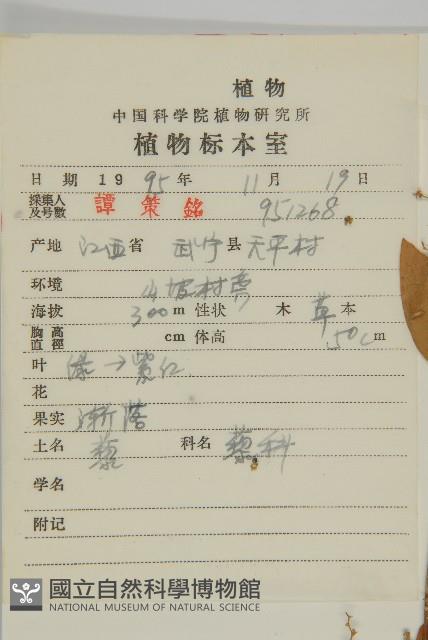 植物
中国科学院植物研究所
植物标本室
日期 1995年 11月 19日
採集人及号數 譚策銘 951268
产地 江西省 武宁县 天平村
环境 山坡村旁
海拔 300m 性状 木 草 本
胸高直徑 cm 体高 50cm
叶 绿→紫红
花
果实 渐落
土名 藜 科名 藜科
学名
附记
國立自然科學博物館
NATIONAL MUSEUM OF NATURAL SCIENCE